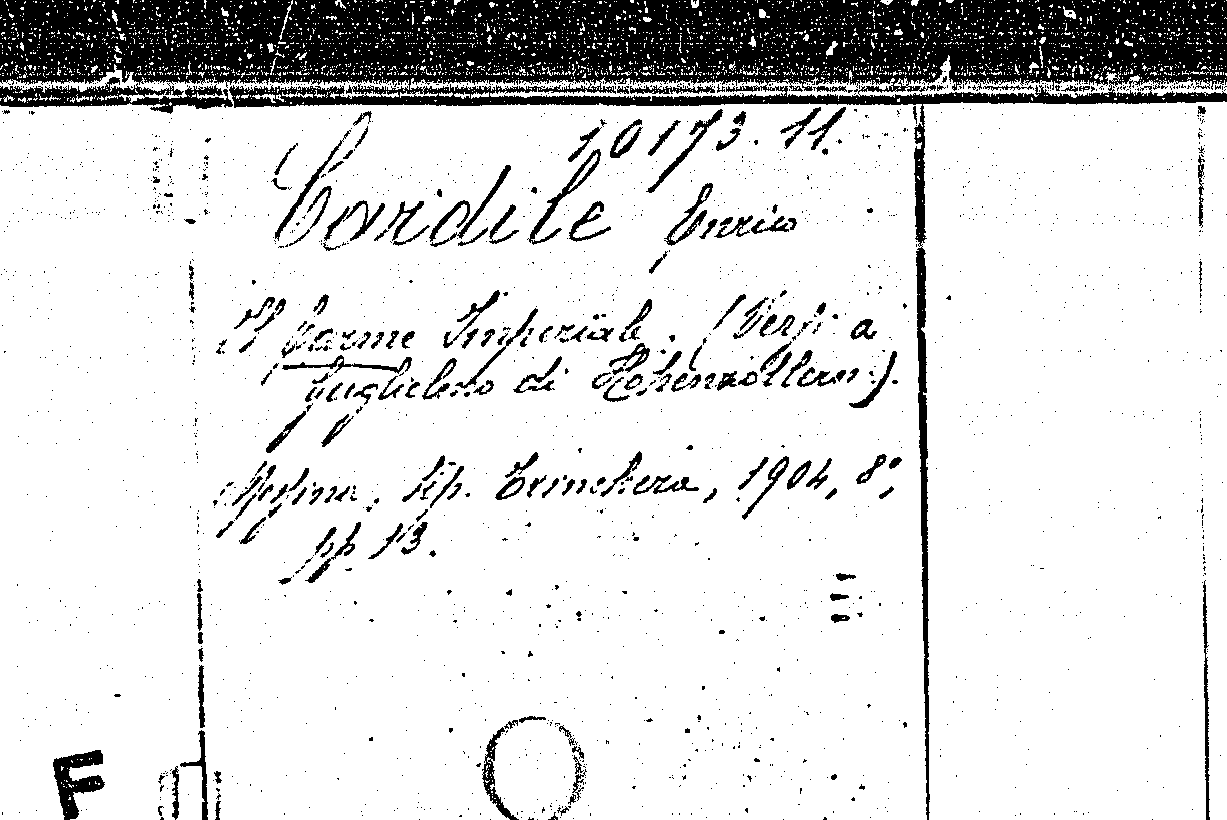 10173.11.
Cardile Enrico
Il Carme Imperiale. (Versi a
Guglielmo di Hohenzollern.).
Messina, Tip. Trinchera, 1904, 8°,
pp. 13.
F